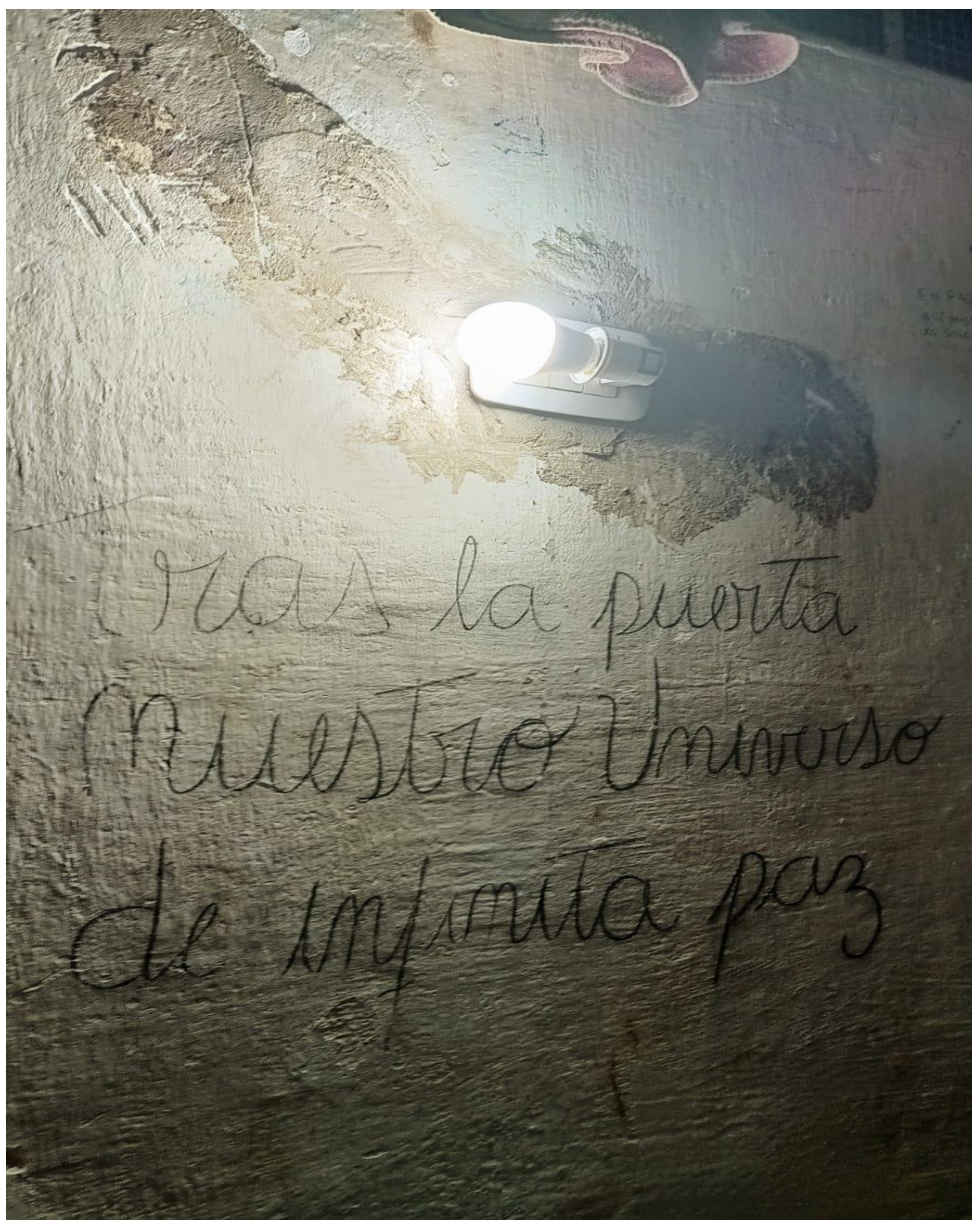 Tras la puerta
Nuestro Universo
de infinita paz